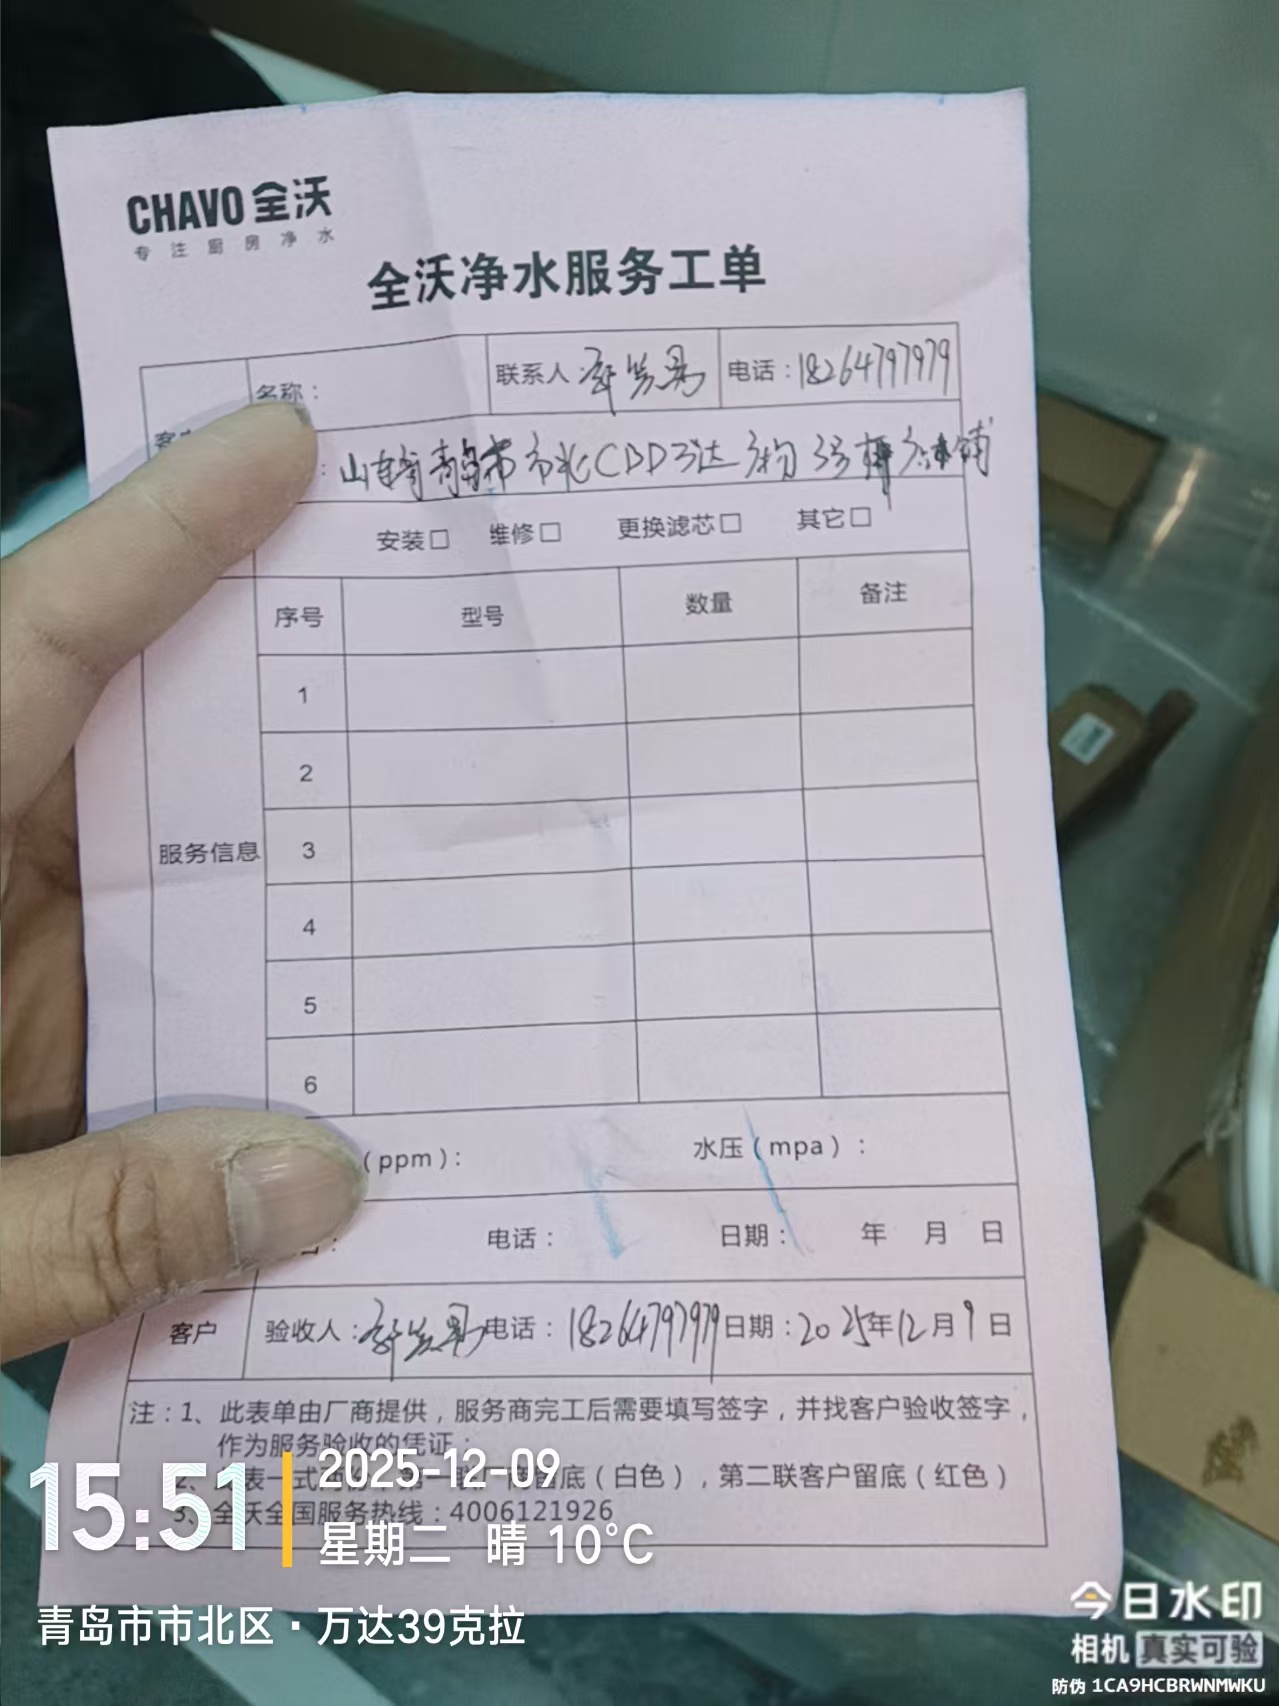 CHAVO 全沃
专注厨房净水
全沃净水服务工单
名称：
联系人：
电话：18264797979
山东省青岛市市北CBD万达广场3号
安装□ 维修□ 更换滤芯□ 其它□
序号 型号 数量 备注
1
2
服务信息 3
4
5
6
（ppm）： 水压（mpa）：
电话： 日期： 年 月 日
客户 验收人： 电话：18264797979 日期：2025年12月9日
注：1、此表单由厂商提供，服务商完工后需要填写签字，并找客户验收签字，
作为服务验收的凭证；
表一式 底（白色），第二联客户留底（红色）
3、全沃全国服务热线：4006121926
15:51
2025-12-09
星期二 晴 10℃
青岛市市北区·万达39克拉
今日水印
相机 真实可验
防伪 1CA9HCBRWNMWKU